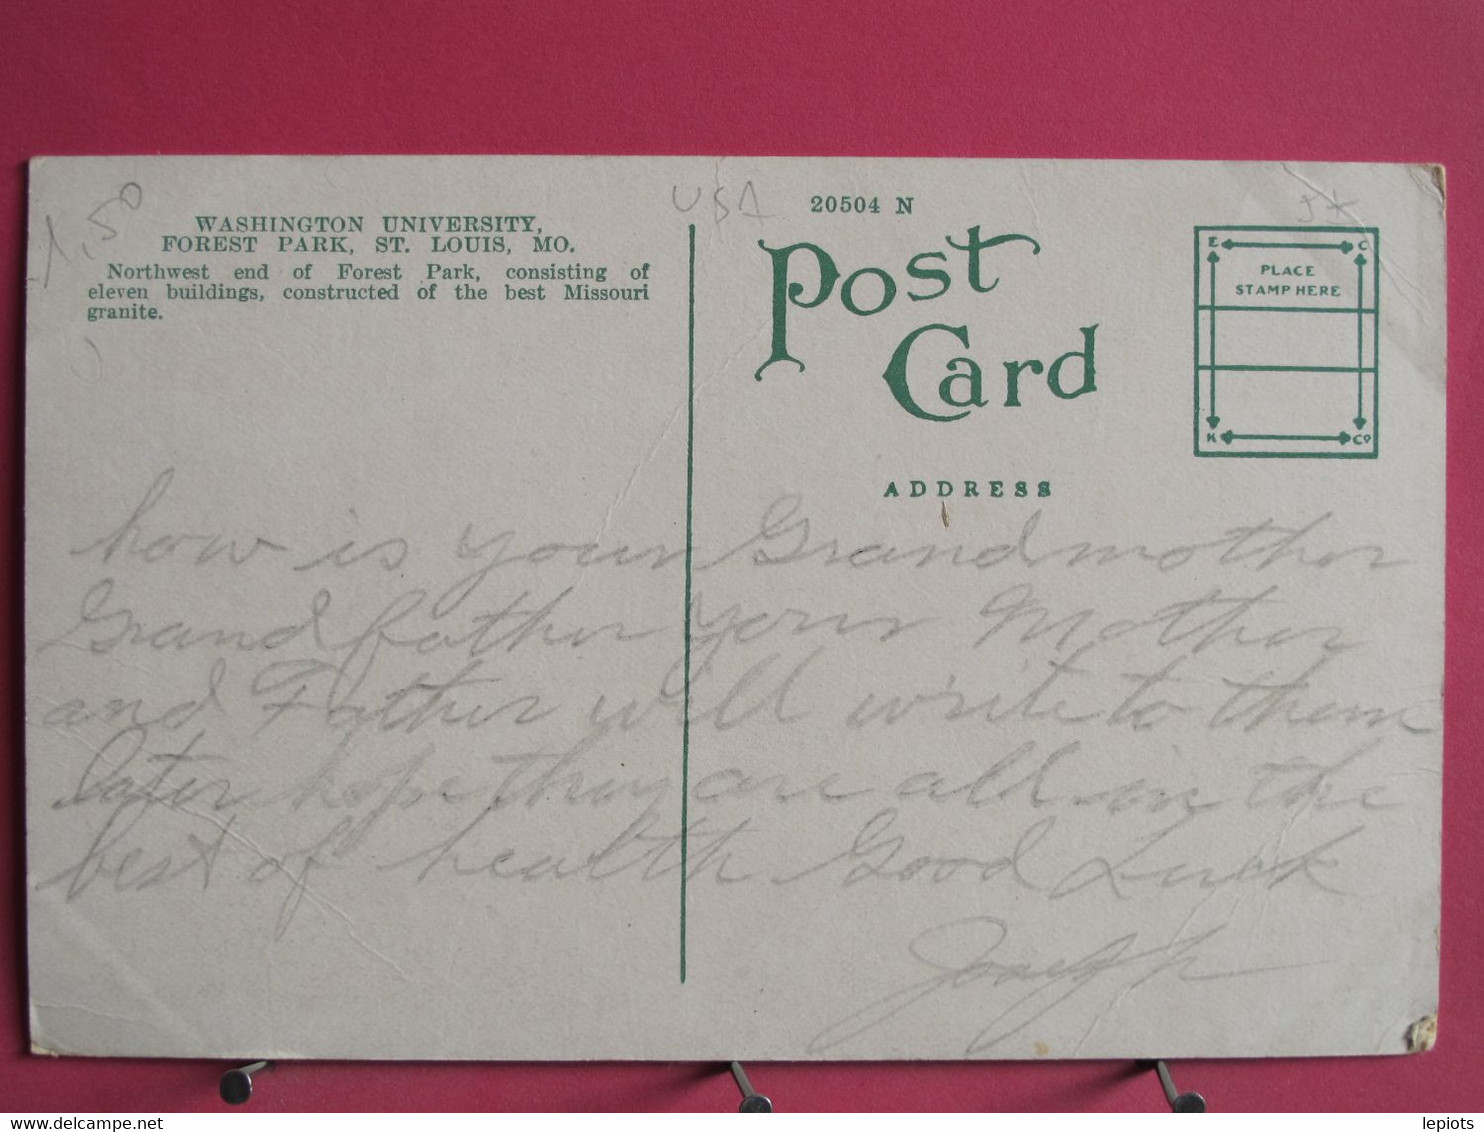 1,50
WASHINGTON UNIVERSITY,
FOREST PARK, ST. LOUIS, MO.
Northwest end of Forest Park, consisting of
eleven buildings, constructed of the best Missouri
granite.
USA
20504 N
Post
Card
ADDRESS
E C
PLACE
STAMP HERE
K Co
how is your Grandmother
Grandfather your Mother
and Father will write to them
later hope they are all in the
best of health Good Luck
Joseph
www.delcampe.net
lepiots